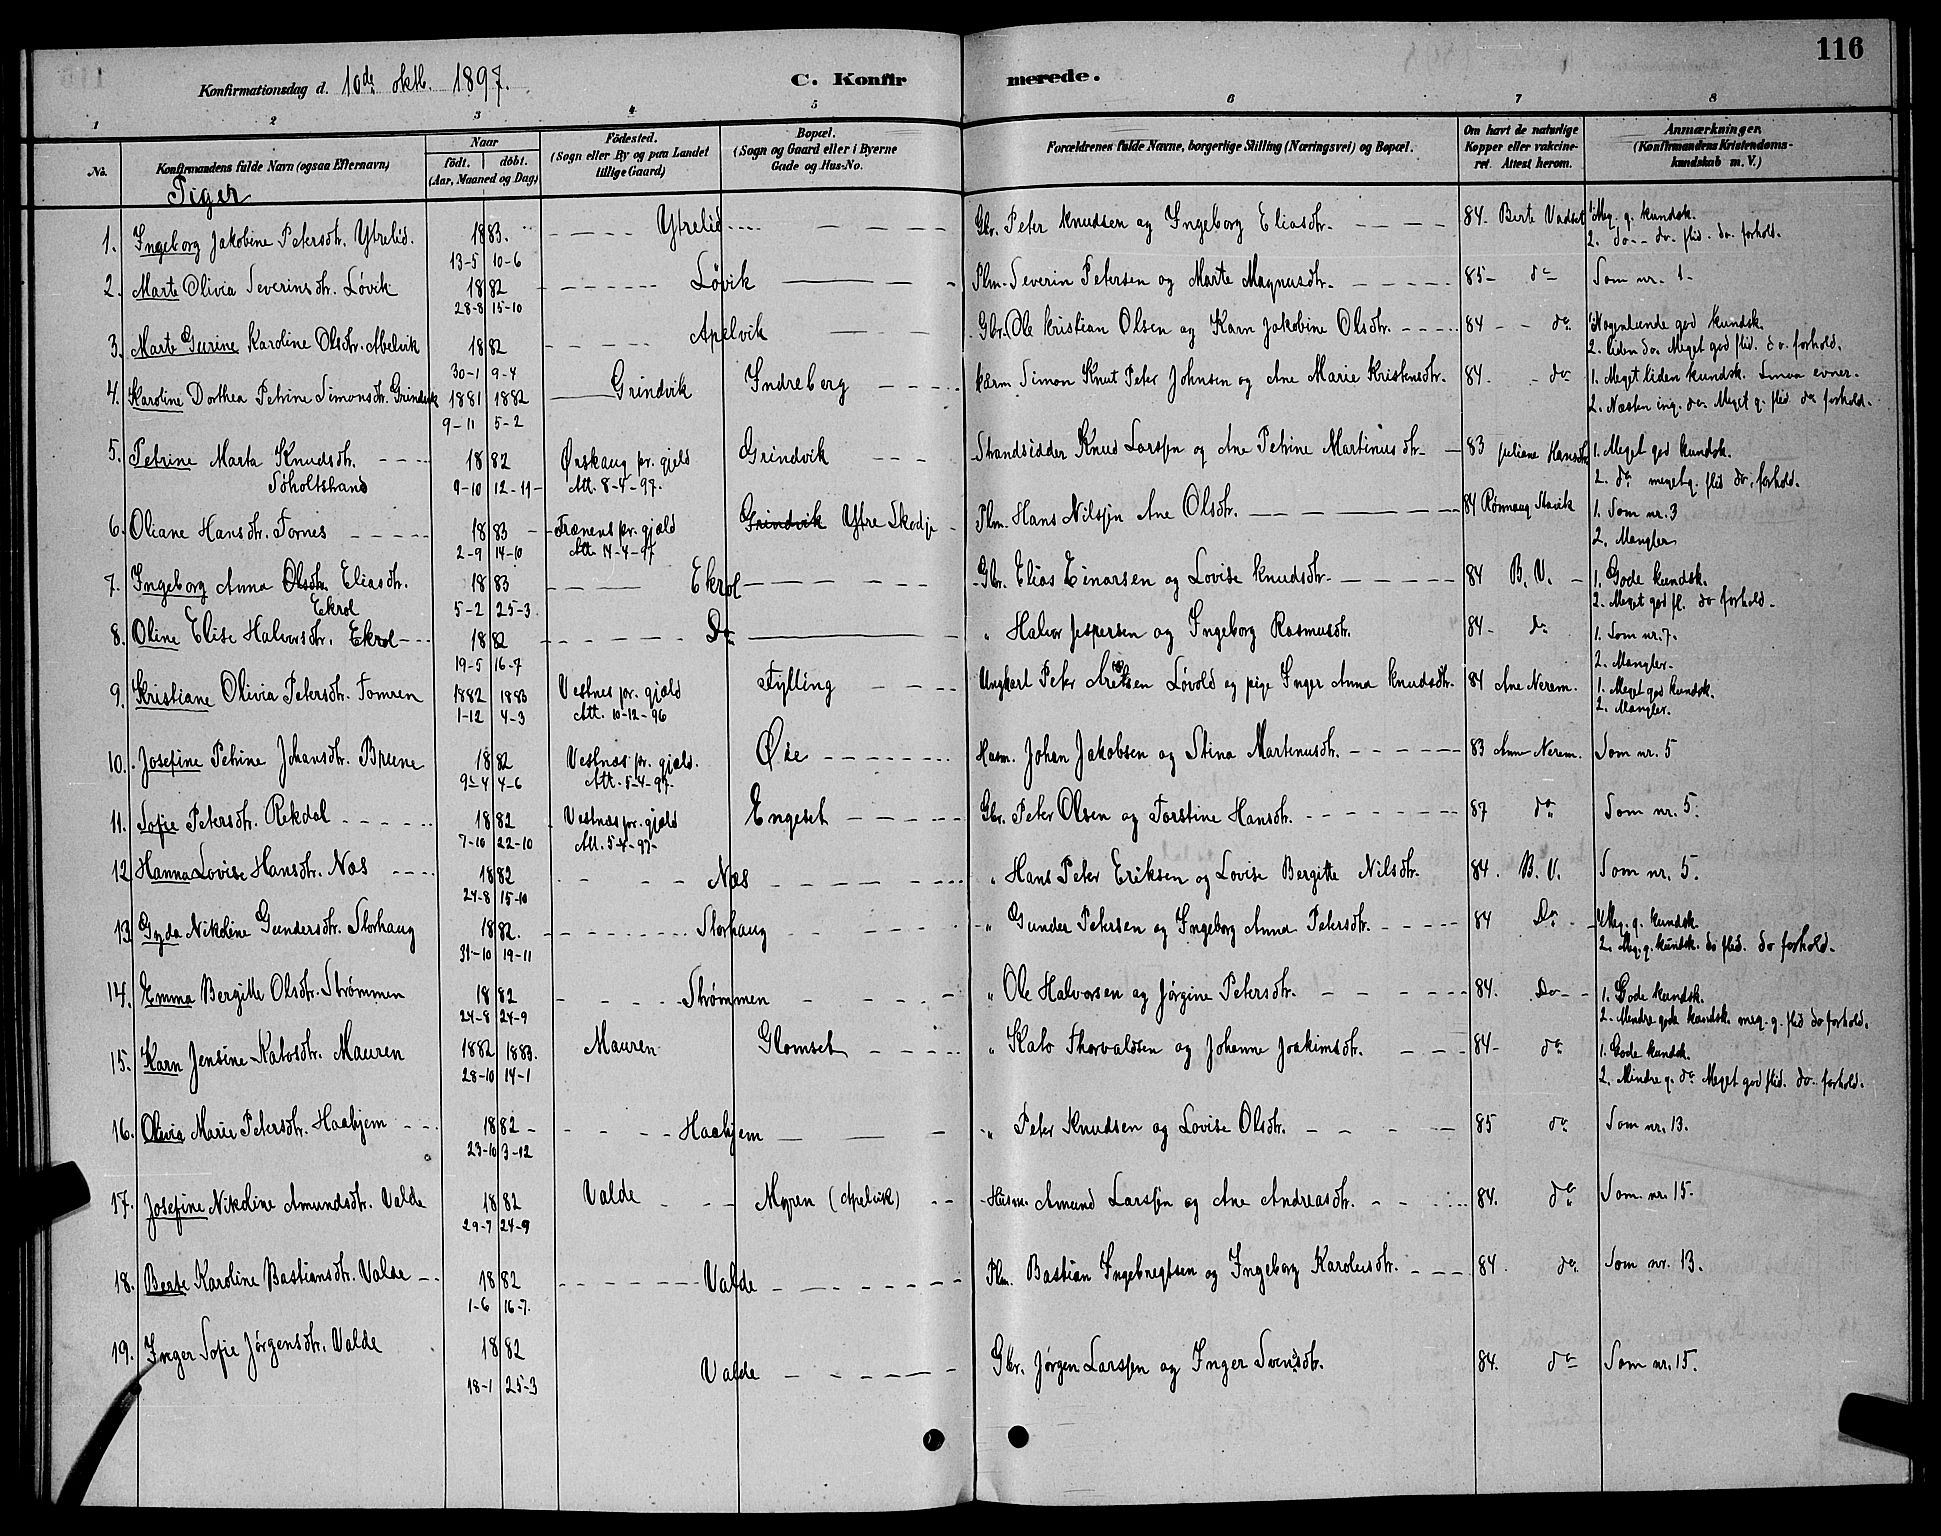 116
Konfirmationsdag d. 10de oktb. 1897. C. Konfirmerede.
1 2 3 4 5 6 7 8
No. Konfirmandens fulde Navn (ogsaa Efternavn) Naar født. døbt. (Aar, Maaned og Dag) Fødested. (Sogn eller By og paa Landet tillige Gaard) Bopæl. (Sogn og Gaard eller i Byerne Gade og Hus-No. Forældrenes fulde Navne, borgerlige Stilling (Næringsvei) og Bopæl. Om havt de naturlige Kopper eller vakcineret. Attest herom. Anmærkninger. (Konfirmandens Kristendomskundskab m. V.)
Piger
1. Ingeborg Jakobine Petersdtr. Ytrelid. 1883. Ytrelid Gbr. Peter Knudsen og Ingeborg Eliasdtr. 84. Berte Vadset 1. Meg. g. kundsk.
13-5 10-6 2. do - do flid. do. forhold.
2. Marte Olivia Severinsdtr. Løvik 1882 Løvik Plm. Severin Petersen og Marte Magnusdtr. 85 do Som nr. 1.
28-8 15-10
3. Marte Gurine Karoline Olsdtr. Abelvik 1882 Apelvik Gbr. Ole Kristian Olsen og Karn Jakobine Olsdtr. 84 do 1. Nogenlunde god kundsk.
30-1 9-4 2. liden do. Meget god flid. do. forhold.
4. Karoline Dorthea Petrine Simonsdtr. Grindvik 1881 1882 Grindvik Indreberg Simon Knut Peter Johnsen og Ane Marie Kristensdtr. 84. do 1. Meget liden kundsk. Smaa evner.
9-11 5-2 2. Næsten ing. do. Meget g. flid do forhold.
5. Petrine Marta Knudsdtr. 1882 Ørskaug pr. gjeld Grindvik Strandsidder Knud Larssen og Ane Petrine Martinusdtr. 83 Juliane Hansdtr 1. Meget god kundsk.
Søholtstrand 9-10 12-11 Att. 8-4-97. 2. do meget g. flid do. forhold.
6. Oliane Hansdtr. Tornes 1883 Frænens pr. gjæld Grindvik Ytre Skodje Plm. Hans Nilssen Ane Olsdtr. 84 Rønnaug Stavik 1. Som nr. 3
2-9 14-10 Att. 14-4-97 2. Mangler
7. Ingeborg Anna Olsdtr. Eliasdtr. 1883 Ekrol Gbr. Elias Einarsen og Lovise Knudsdtr. 84 B. V. 1. Gode kundsk.
Ekrol 5-2 25-3. 2. Meget god fl. do forhold.
8. Oline Elise Halvorsdtr. Ekrol 1882 Do " Halvor Jespersen og Ingeborg Rasmusdtr. 84 do 1. Som nr. 7.
19-5 16-7 2. Mangler.
9. Kristiane Olivia Petersdtr. Tomren 1882 1883 Vestnes pr. gjæld Fylling Ungkarl Peter Løvold og pige Inger Anna Knudsdtr. 84 Ane Nerem. 1. Meget god kundsk.
1-12 4-3 Att. 10-12-96 2. Mangler.
10. Josefine Petrine Johansdtr. Brune 1882 Vestnes pr. gjæld. Øie Husm. Johan Jakobsen og Stina Martinusdtr. 83 Ane Nerem. Som nr. 5
9-4 4-6 Att. 5-4-97.
11. Sofie Petersdtr. Rekdal 1882 Vestnes pr. gjæld Engeset Gbr. Peter Olsen og Torstine Hansdtr. 87 do Som nr. 5.
7-10 22-10 Att. 5-4-97.
12 Hanna Lovise Hansdtr. Næs 1882 Næs " Hans Peter Eriksen og Lovise Bergitte Nilsdtr. 84. B. V. Som nr. 5.
24-8 15-10
13 Gyda Nikoline Gundersdtr. Storhaug 1882. Storhaug " Gunder Petersen og Ingeborg Anna Petersdtr. 84 Do 1. Meg. g. kundsk.
31-10 19-11 2. Meg. g. kundsk. do flid. do forhold.
14. Emma Bergitte Olsdtr. Strømmen 1882 Strømmen " Ole Halvorsen og Jørgine Petersdtr. 84. Do 1. Gode kundsk.
24-8 24-9 2. Mindre gode kundsk. meg. g. flid do forhold.
15. Karn Jensine Katosdtr. Mauren 1882 1883. Mauren Glomset " Kato Thorvaldsen og Johanne Joakimsdtr. 84 do 1. Gode kundsk.
28-10 14-1 2. Mindre g. do Meget god flid. do. forhold.
16. Olivia Marie Petersdtr. Haabjem 1882 Haabjem " Peter Knudsen og Lovise Olsdtr. 85 do Som nr. 13.
23-10 3-12
17. Josefine Nikoline Amundsdtr. Valde 1882 Valde Myren (Apelvik) Husm. Amund Larssen og Ane Andreasdtr. 84. do Som nr. 15.
29-7 24-9
18. Berte Karoline Bastiansdtr. Valde 1882 Valde Plm. Bastian Ingebregtsen og Ingeborg Karolusdtr. 84. do. Som nr. 13.
1-6 16-7.
19. Inger Sofie Jørgensdtr. Valde 1882 Valde Gbr. Jørgen Larssen og Inger Svensdtr. 84. do Som nr. 15.
18-1 25-3